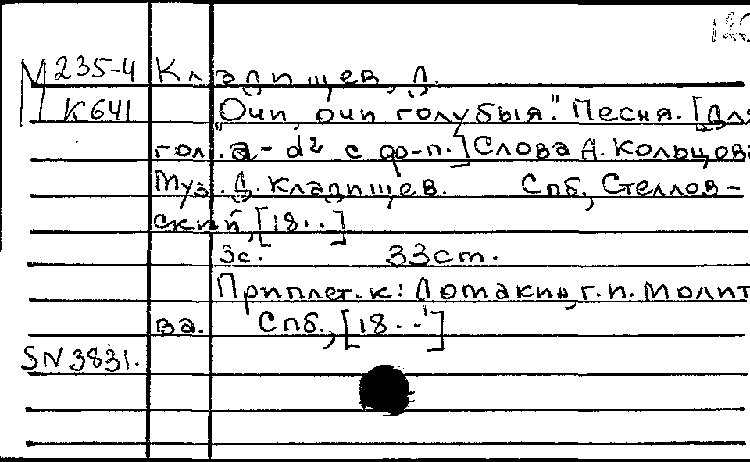 М 235-4 Кладищев, Д.
К 641 "Очи, очи голубыя." Песня. [Для
гол. a - d² с ф-п.] Слова А. Кольцова
Муз. Д. Кладищев. Спб, Стеллов-
ский, [18..]
3с. 33ст.
Приплет. к: Ломакин, г. п. Молит
ва. Спб., [18..]
SN 3831.